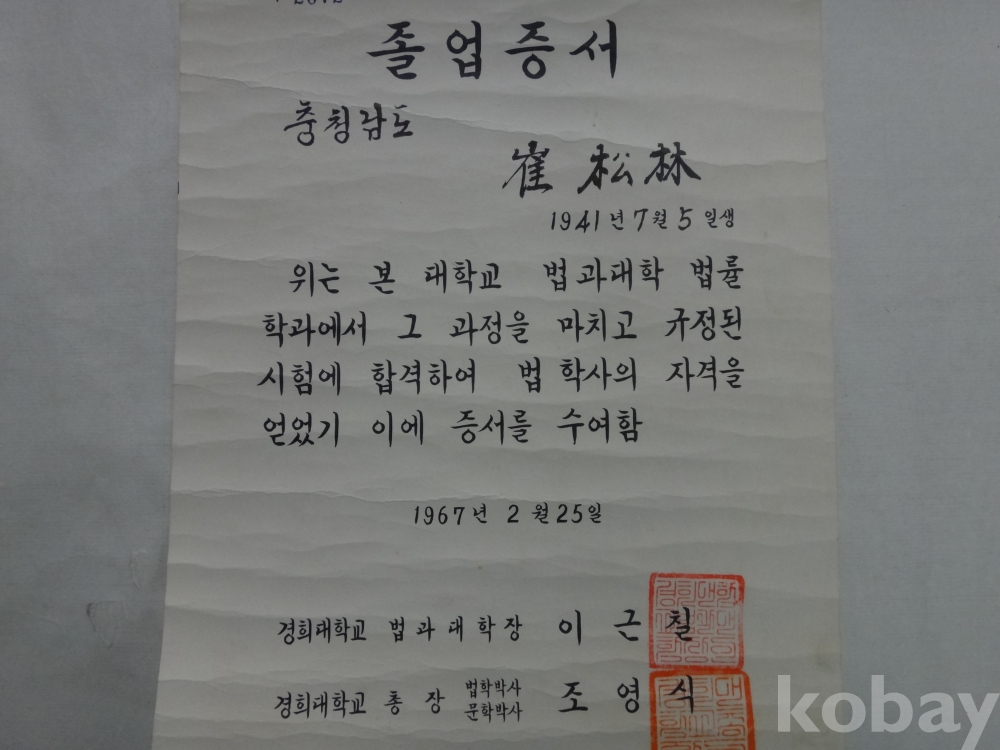 졸업증서
충청남도
崔 松林
1941년 7월 5일생
위는 본 대학교 법과대학 법률
학과에서 그 과정을 마치고 규정된
시험에 합격하여 법학사의 자격을
얻었기 이에 증서를 수여함
1967년 2월 25일
경희대학교 법과대학장 이근칠
경희대학교 총장 법학박사 문학박사 조영식
kobay